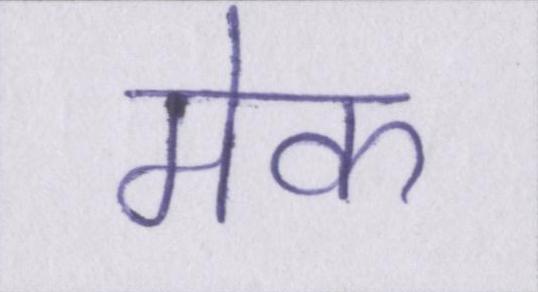 मेक